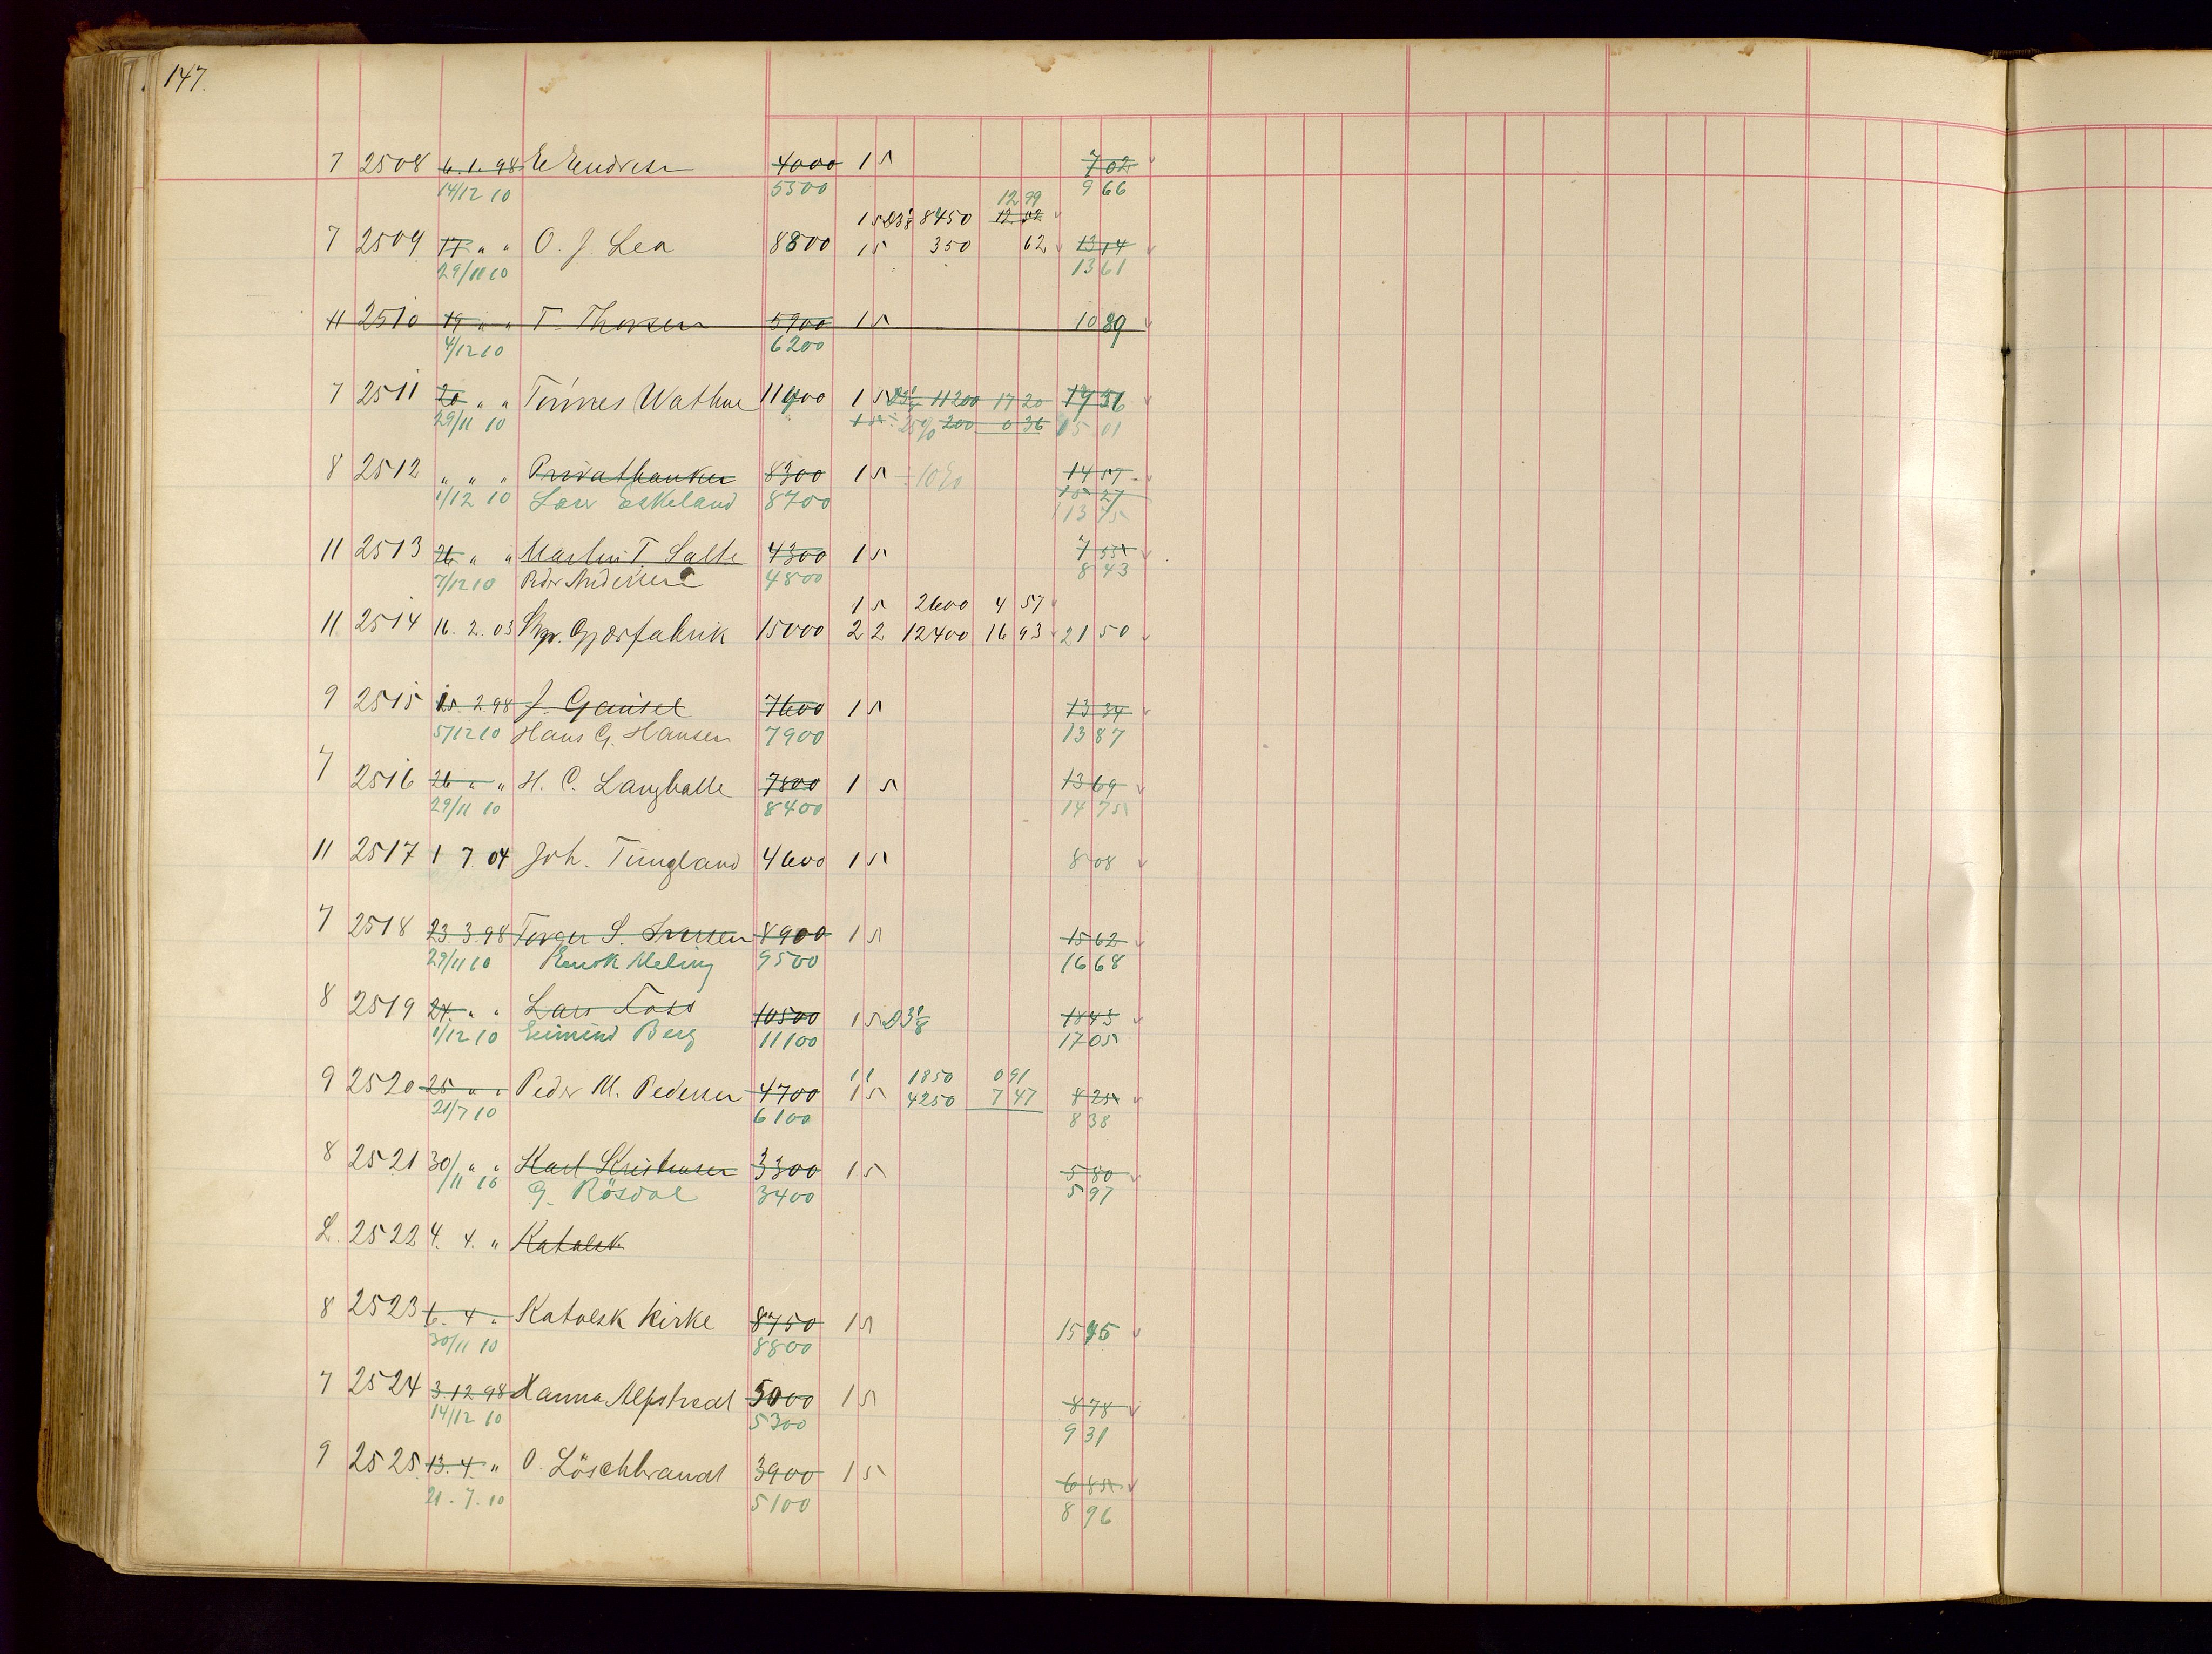 147.
7 2508 6.1.98 E Endresen 4000 15 7 02
14/12 10 5300 9 66
12 99
15 D3/8 8450 12 52
7 2509 17 " " O. J. Lea 8800 15 350 62 13 14
29/11 10 13 61
11 2510 19 " " T. Thorsen 5900 15 10 89
4/12 10 6200
7 2511 20 " " Tönnes Wathne 11400 15 11200 17 20
29/11 10 15 25% 200 0 36 15 01
8 2512 " " " Privatbanken 8300 15 - 10% 14 57
1/12 10 Lars Eskeland 8700 15 27
13 75
11 2513 26 " " Martin T. Salte 4300 15 7 55
7/12 10 Peder Andersen 4800 8 43
15 2600 4 57
11 2514 16. 2. 03 Gjærfabrik 15000 22 12400 16 93 21 50
9 2515 15. 2. 98 J. Gausel 7600 15 13 34
5/12 10 Hans G. Hansen 7900 13 87
7 2516 26 " " H. C. Langballe 7800 15 13 69
29/11 10 8400 14 75
11 2517 1 7. 04 Joh. Tungland 4600 15 8 08
7 2518 23. 3. 98 Torger S. Iversen 8900 15 15 62
29/11 10 Enok Meling 9500 16 68
8 2519 24. " " Lars Foss 10500 15 D3/8 18 43
1/12 10 Eimind Berg 11100 17 05
11 1850 0 91
9 2520 25 " " Peder M. Pedersen 4700 15 4250 7 47 8 25
21/7 10 6100 8 38
8 2521 30/ " " Karl Kristensen 3300 15 5 80
/11 10 G. Rösdal 3400 5 97
L. 2522 4. 4. " Katolsk
8 2523 6. 4 " Katolsk kirke 8750 15 15 45
30/11 10 8800
7 2524 3. 12. 98 Hanna Alfstredt 5000 15 8 78
14/12 10 5300 9 31
9 2525 13. 4. " O. Löschbrandt 3900 15 6 85
21. 7. 10 5100 8 96